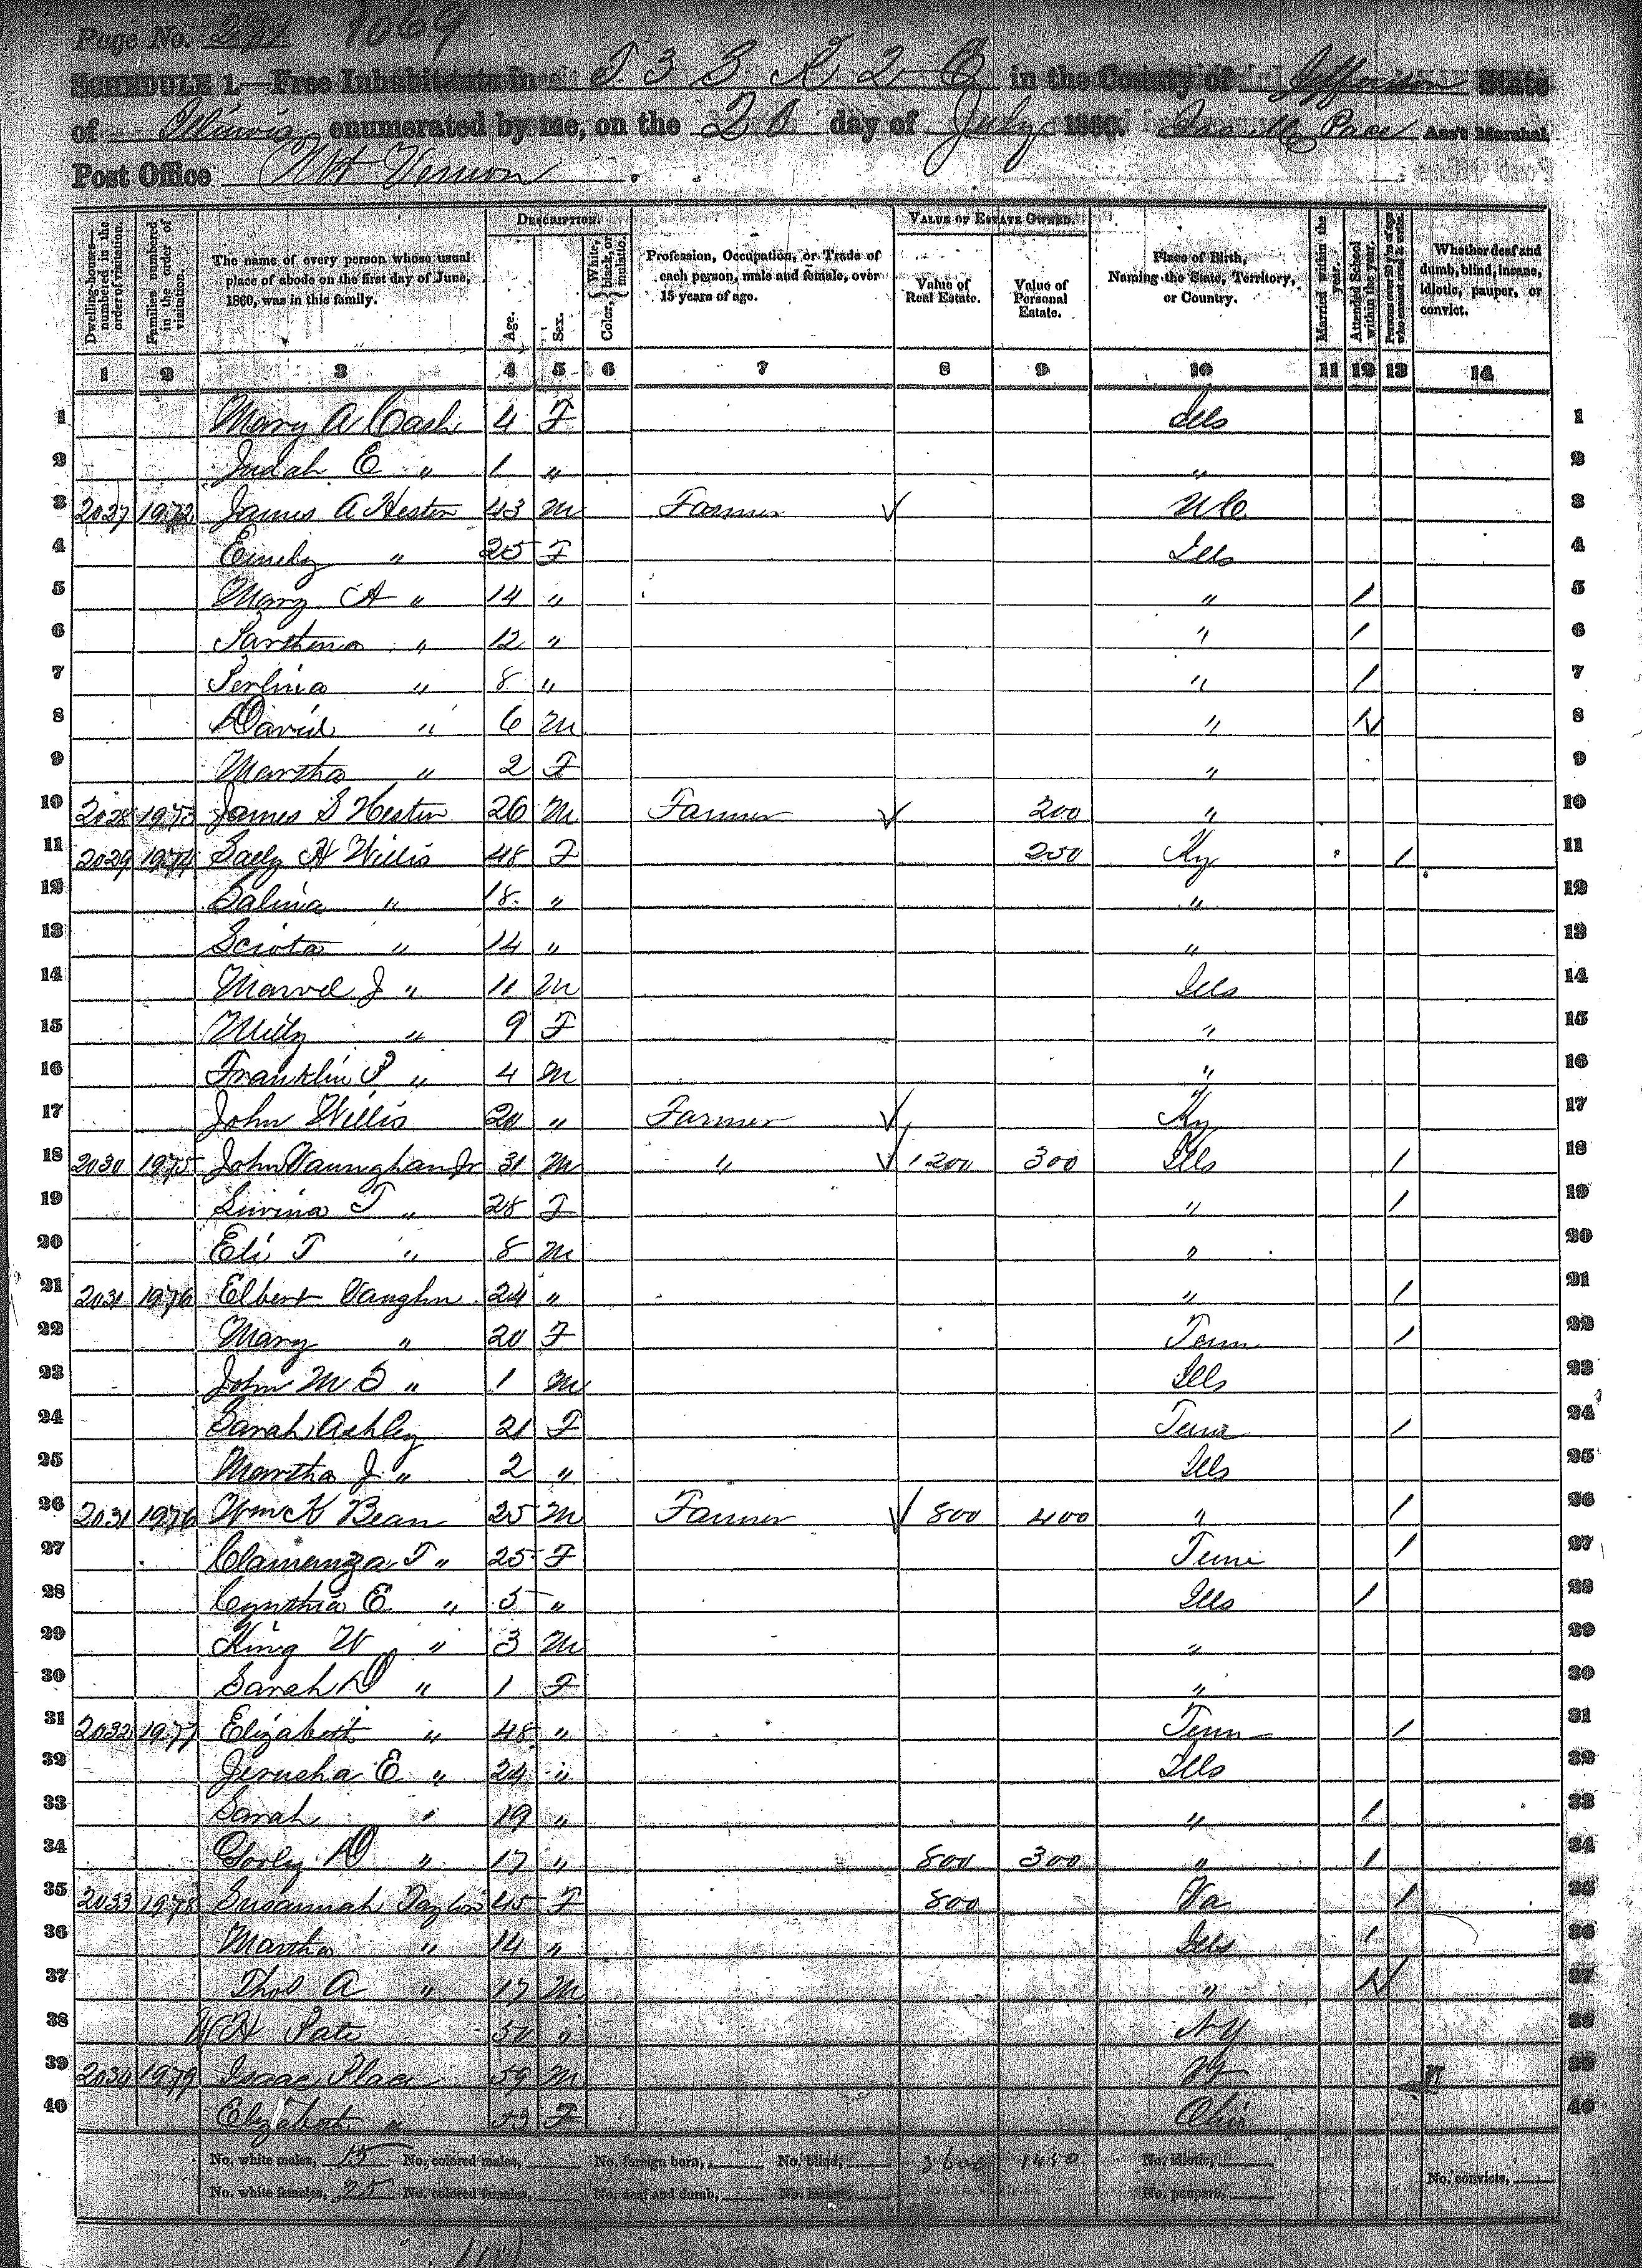 Page No. 291 1069
SCHEDULE 1.—Free Inhabitants in T 3 S R 2 E in the County of Jefferson State
of Illinois enumerated by me, on the 20 day of July 1860. Pace Ass't Marshal
Post Office Mt Vernon.
Dwelling-houses—numbered in the order of visitation.
Families numbered in the order of visitation.
The name of every person whose usual place of abode on the first day of June, 1860, was in this family.
DESCRIPTION.
Age.
Sex.
Color, White, black, or mulatto.
Profession, Occupation, or Trade of each person, male and female, over 15 years of age.
VALUE OF ESTATE OWNED.
Value of Real Estate.
Value of Personal Estate.
Place of Birth, Naming the State, Territory, or Country.
Married within the year.
Attended School within the year.
Persons over 20 y'rs of age who cannot read & write.
Whether deaf and dumb, blind, insane, idiotic, pauper, or convict.
1 2 3 4 5 6 7 8 9 10 11 12 13 14
1 Mary A Cash 4 F Ills 1
2 Judah E " 1 " " 2
3 2027 1972 James A Hester 43 M Farmer N C 3
4 Emily " 25 F Ills 4
5 Mary A " 14 " " / 5
6 Parthena " 12 " " / 6
7 Perlina " 8 " " / 7
8 David " 6 M " / 8
9 Martha " 2 F " 9
10 2028 1973 James S Hester 26 M Farmer 200 " 10
11 2029 1974 Sally H Willis 48 F 250 Ky / 11
12 Salina " 18 " " 12
13 Sciota " 14 " " 13
14 Marvel J " 11 M Ills 14
15 Milly " 9 F " 15
16 Franklin P " 4 M " 16
17 John Willis 20 " Farmer Ky 17
18 2030 1975 John Vaunghan Jr 31 M " 1200 300 Ills / 18
19 Luvina T " 28 F " / 19
20 Eli T " 8 M " 20
21 2031 1976 Elbert Vaughn 24 " " / 21
22 Mary " 20 F Tenn / 22
23 John M S " 1 M Ills 23
24 Sarah Ashley 21 F Tenn / 24
25 Martha J " 2 " Ills 25
26 2031 1976 Wm K Bean 25 M Farmer 800 400 " / 26
27 Clamenza T " 25 F Tenn / 27
28 Cynthia E " 5 " Ills / 28
29 King W " 3 M " 29
30 Sarah D " 1 F " 30
31 2032 1977 Elizabeth " 48 " Tenn / 31
32 Jerusha E " 24 " Ills 32
33 Sarah " 19 " " / 33
34 D " 17 " 800 300 " / 34
35 2033 1978 Susannah Taylor 45 F 800 Va / 35
36 Martha " 14 " Ills / 36
37 Thos A " 17 M " / 37
38 W H Pate 50 " N Y 38
39 2034 1979 Isaac Place 59 M 39
40 Elizabeth " 53 F Ohio 40
No. white males, 15 No. colored males, No. foreign born, No. blind, 3600 1450 No. idiotic,
No. white females, 25 No. colored females, No. deaf and dumb, No. insane, No. paupers, No. convicts,